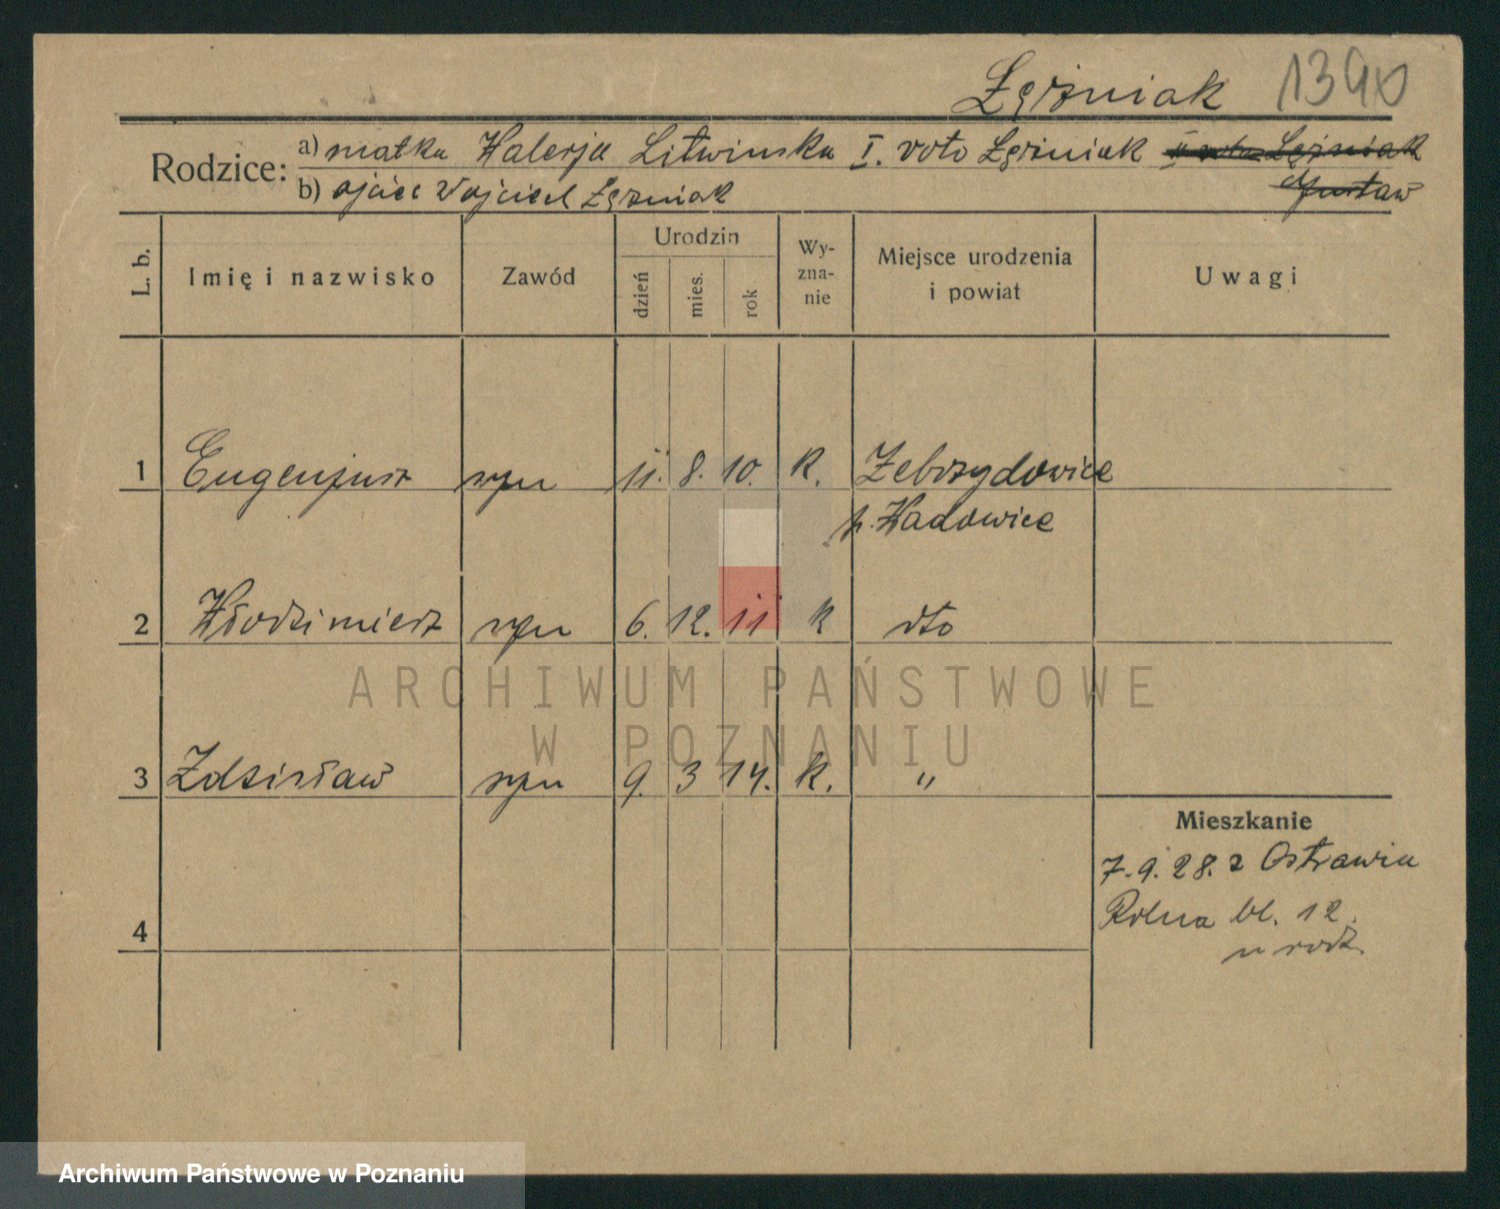 Łęźniak 1390
Rodzice: a) matka Walerja Litwinska I. voto Łęźniak II voto Łęźniak
b) ojciec Wojciech Łęźniak Gustaw
L. b. Imię i nazwisko Zawód Urodzin dzień mies. rok Wy-zna-nie Miejsce urodzenia i powiat Uwagi
1 Eugenjusz syn 11. 8. 10. k. Zebrzydowice
p. Wadowice
2 Włodzimierz syn 6. 12. 11 k dto
ARCHIWUM PAŃSTWOWE
W POZNANIU
3 Zdzisław syn 9. 3 14. k. "
Mieszkanie
7.9.28. z Ostrawia
Rolna bl. 12.
4
u rodz.
Archiwum Państwowe w Poznaniu